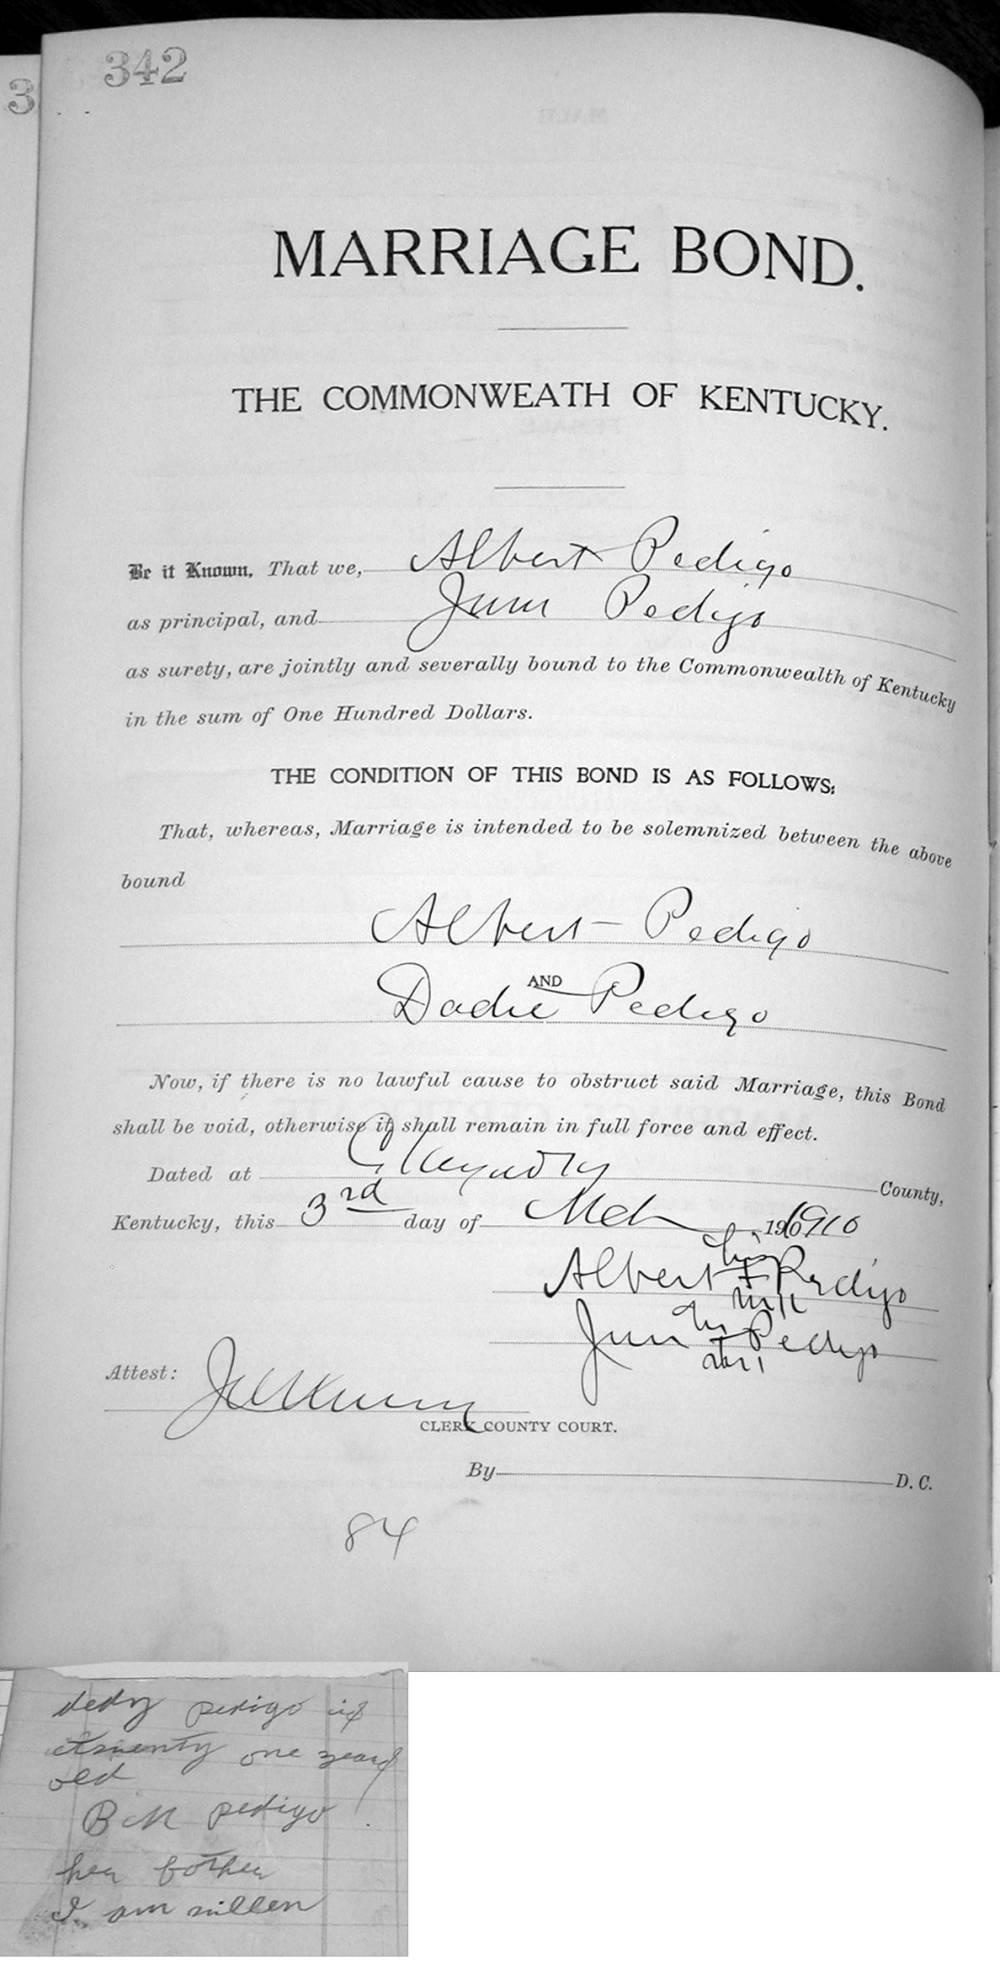 342
3
MARRIAGE BOND.
THE COMMONWEATH OF KENTUCKY.
Be it Known, That we, Albert Pedigo
as principal, and Jim Pedigo
as surety, are jointly and severally bound to the Commonwealth of Kentucky
in the sum of One Hundred Dollars.
THE CONDITION OF THIS BOND IS AS FOLLOWS:
That, whereas, Marriage is intended to be solemnized between the above
bound
Albert Pedigo
AND
Dadie Pedigo
Now, if there is no lawful cause to obstruct said Marriage, this Bond
shall be void, otherwise it shall remain in full force and effect.
Dated at County,
Kentucky, this 3rd day of Mch 1901910
his
Albert + Pedigo
his
Jim + Pedigo
Attest:
CLERK COUNTY COURT.
By D. C.
84
dedy pedigo is
twenty one years
old
B M pedigo
her fother
I am willen